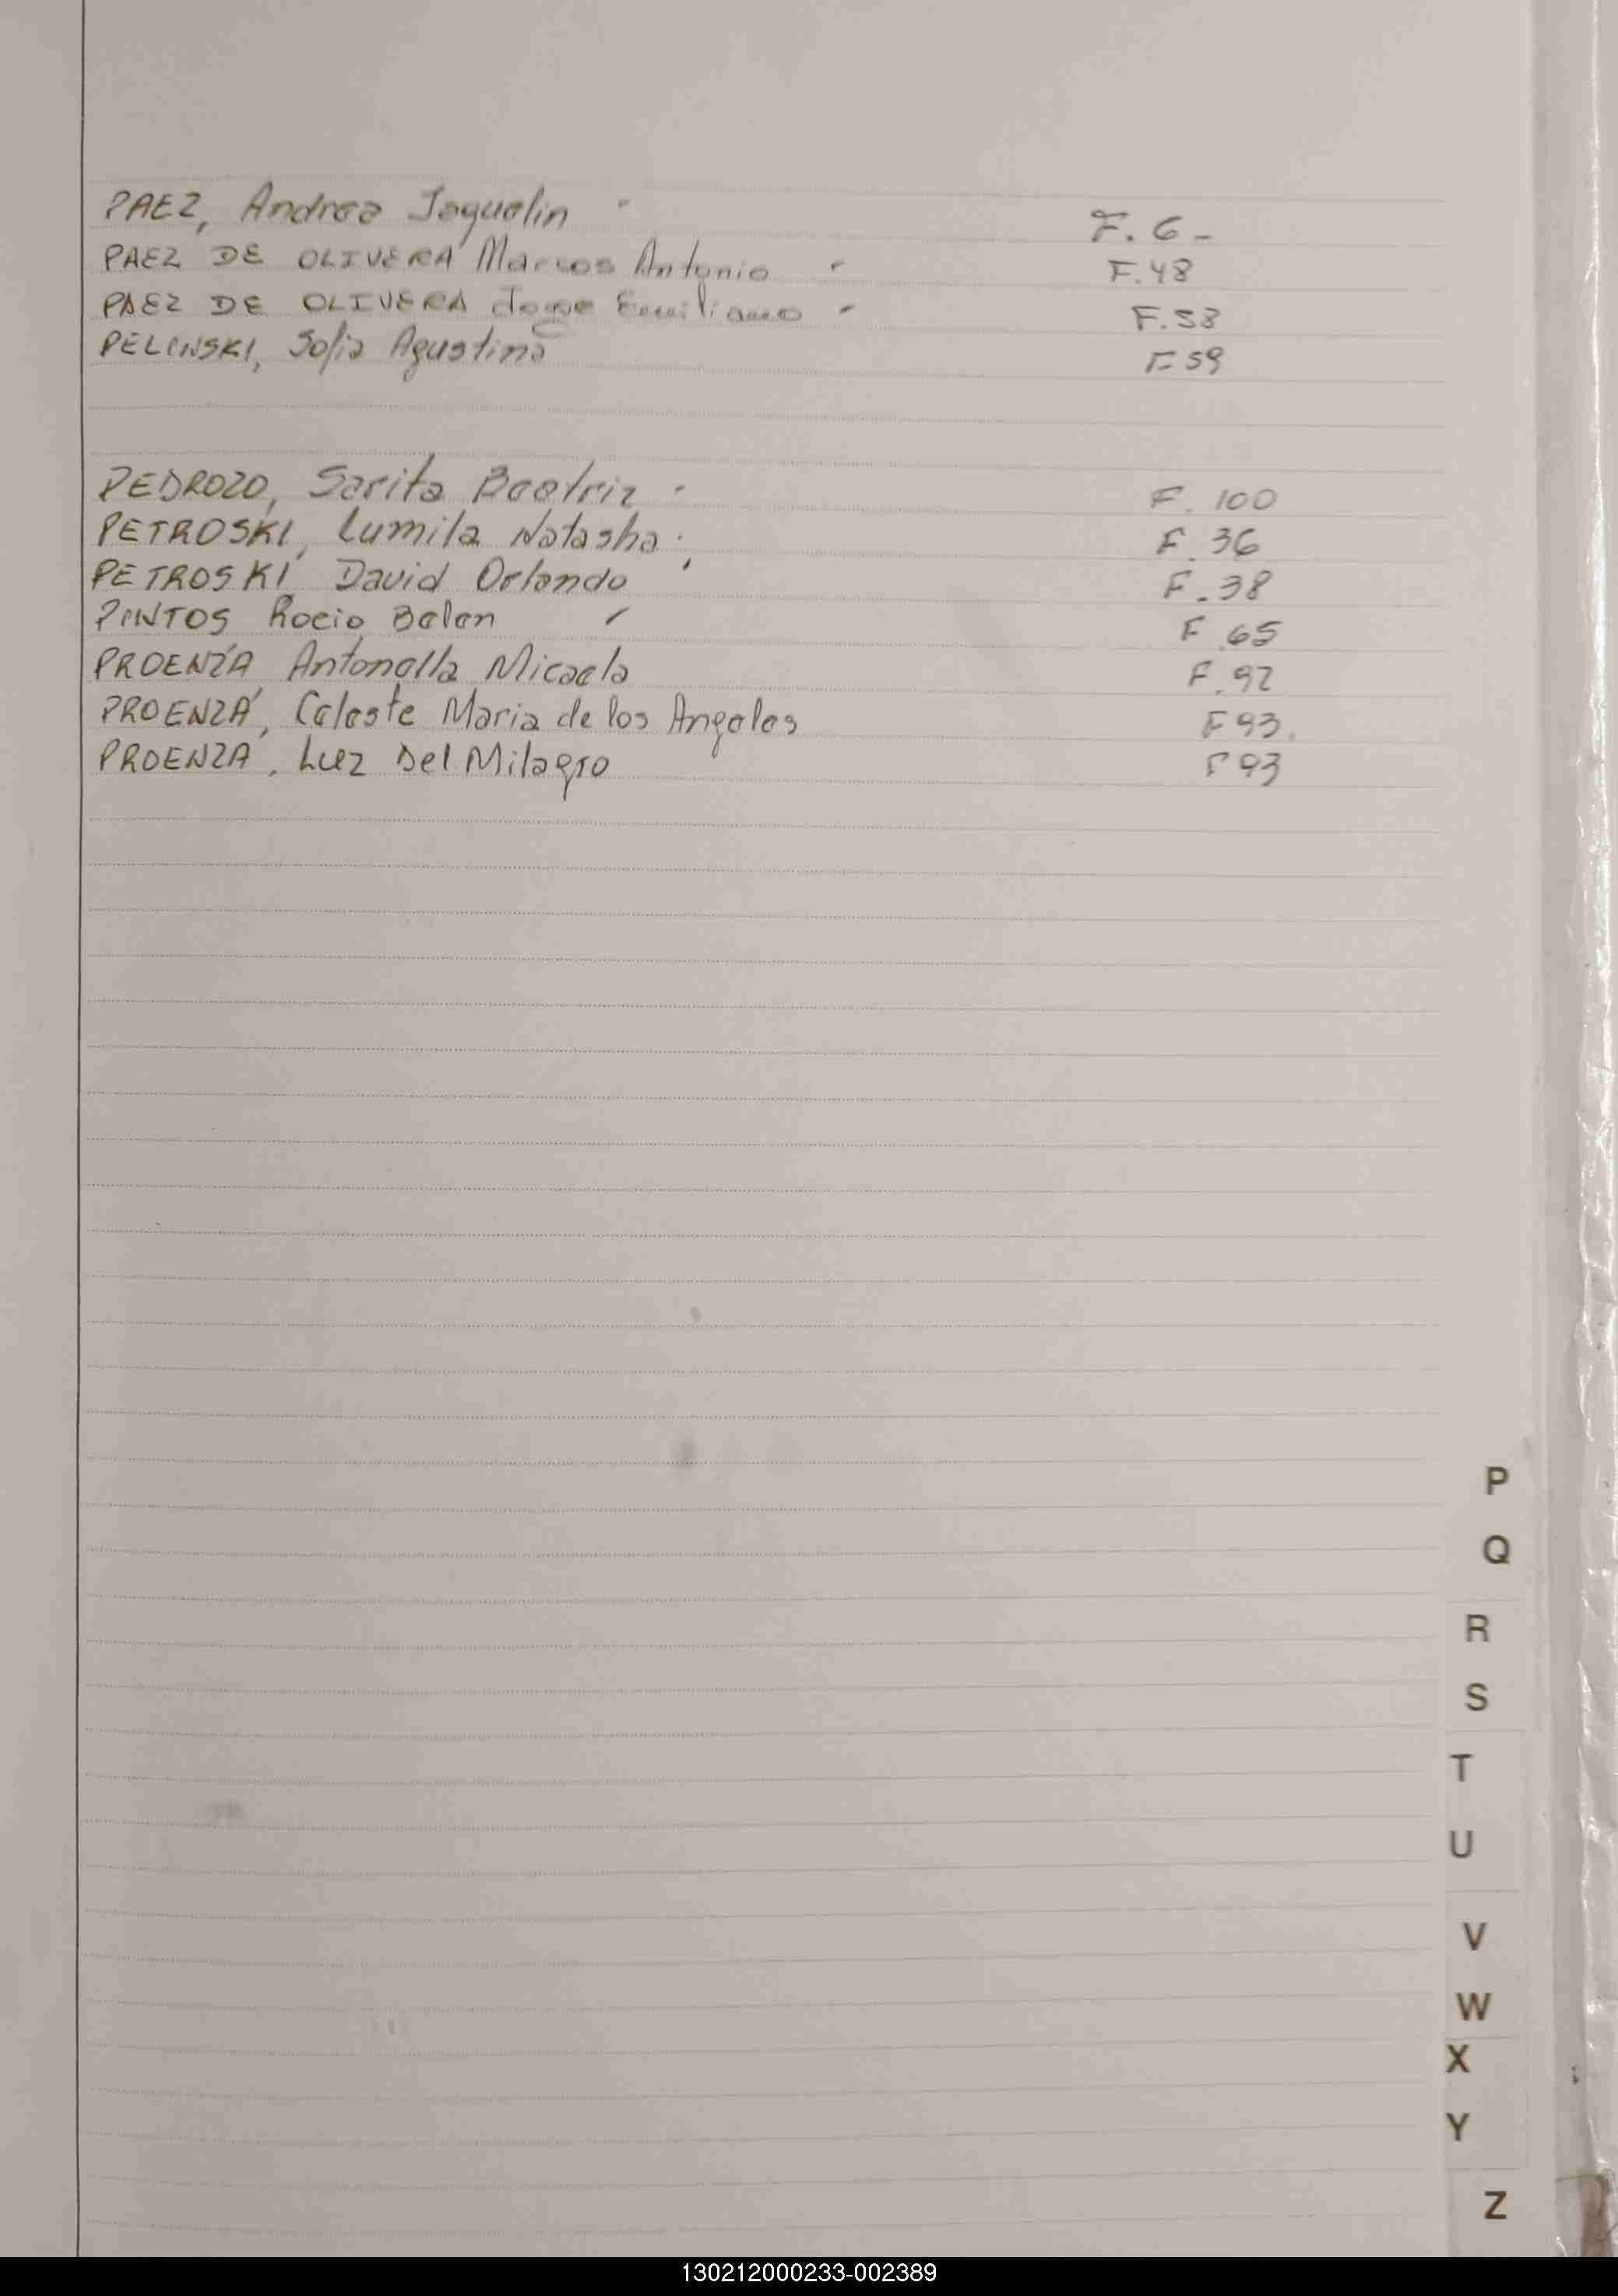 PAEZ, Andrea Jaquelin - F. 6 -
PAEZ DE OLIVERA Marcos Antonio - F. 48
PAEZ DE OLIVERA Jorge Emiliano - F. 58
PELINSKI, Sofia Agustina F 59
PEDROZO, Sarita Beatriz - F. 100
PETROSKI, Lumila Natasha. F. 36
PETROSKI David Orlando F. 38
PINTOS Rocio Belen F 65
PROENZA Antonella Micaela F. 92
PROENZA, Celeste Maria de los Angeles F 93.
PROENZA, Luz Del Milagro F 93
P
Q
R
S
T
U
V
W
X
Y
Z
130212000233-002389